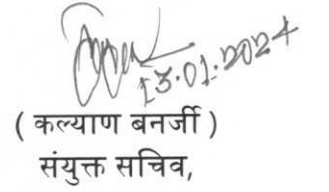 13.01.2024
( कल्याण बनर्जी )
संयुक्त सचिव,